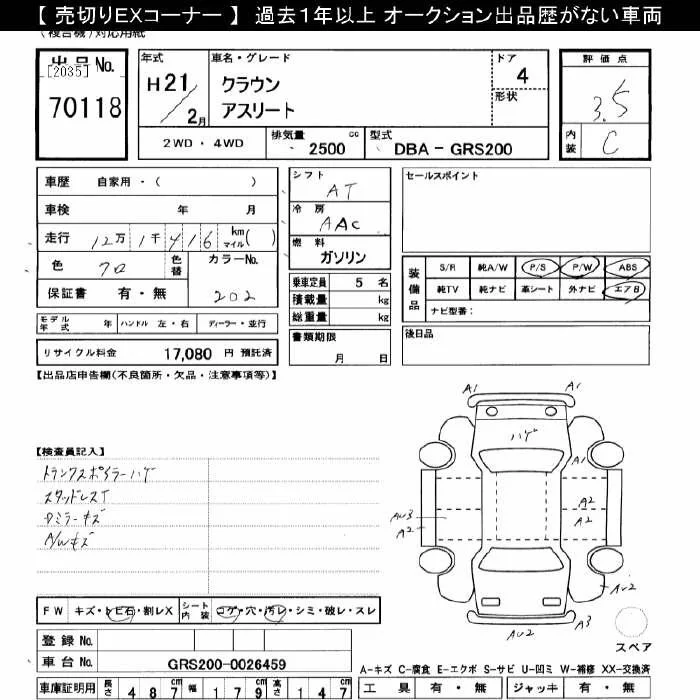 【 売切りEXコーナー 】 過去１年以上 オークション出品歴がない車両
(複合機)対応用紙
出品No.
[2035]
70118
年式
H 21 / 2月
車名・グレード
クラウン
アスリート
ドア
4
形状
2WD ・ 4WD
排気量 2500 cc
型式 DBA － GRS200
評価点
3.5
内装 C
車歴 自家用・( )
車検 年 月
走行 12万 1千 416 km マイル ( )
色 クロ 色替 カラーNo. 202
保証書 有・無
シフト AT
冷房 AAC
燃料 ガソリン
乗車定員 5 名
積載量 kg
総重量 kg
書類期限 月 日
セールスポイント
装備品
S/R 純A/W P/S P/W ABS
純TV 純ナビ 革シート 外ナビ エアB
ナビ型番：
後日品
モデル年式 年 ハンドル 左・右 ディーラー・並行
リサイクル料金 17,080 円 預託済
【出品店申告欄(不良箇所・欠品・注意事項等)】
【検査員記入】
トランクスポイラーハゲ
スタッドレスT
Dミラーキズ
A/Wキズ
A1 A1
ハゲ
A1
AU3
A2
A2
A2
AU2
AU2
A3
スペア
FW キズ・トビ石・割レX シート内装 コゲ・穴・汚レ・シミ・破レ・スレ
登録No.
車台No. GRS200-0026459
車庫証明用 長さ 487 cm 幅 179 cm 高さ 147 cm
A-キズ C-腐食 E-エクボ S-サビ U-凹ミ W-補修 XX-交換済
工具 有・無 ジャッキ 有・無